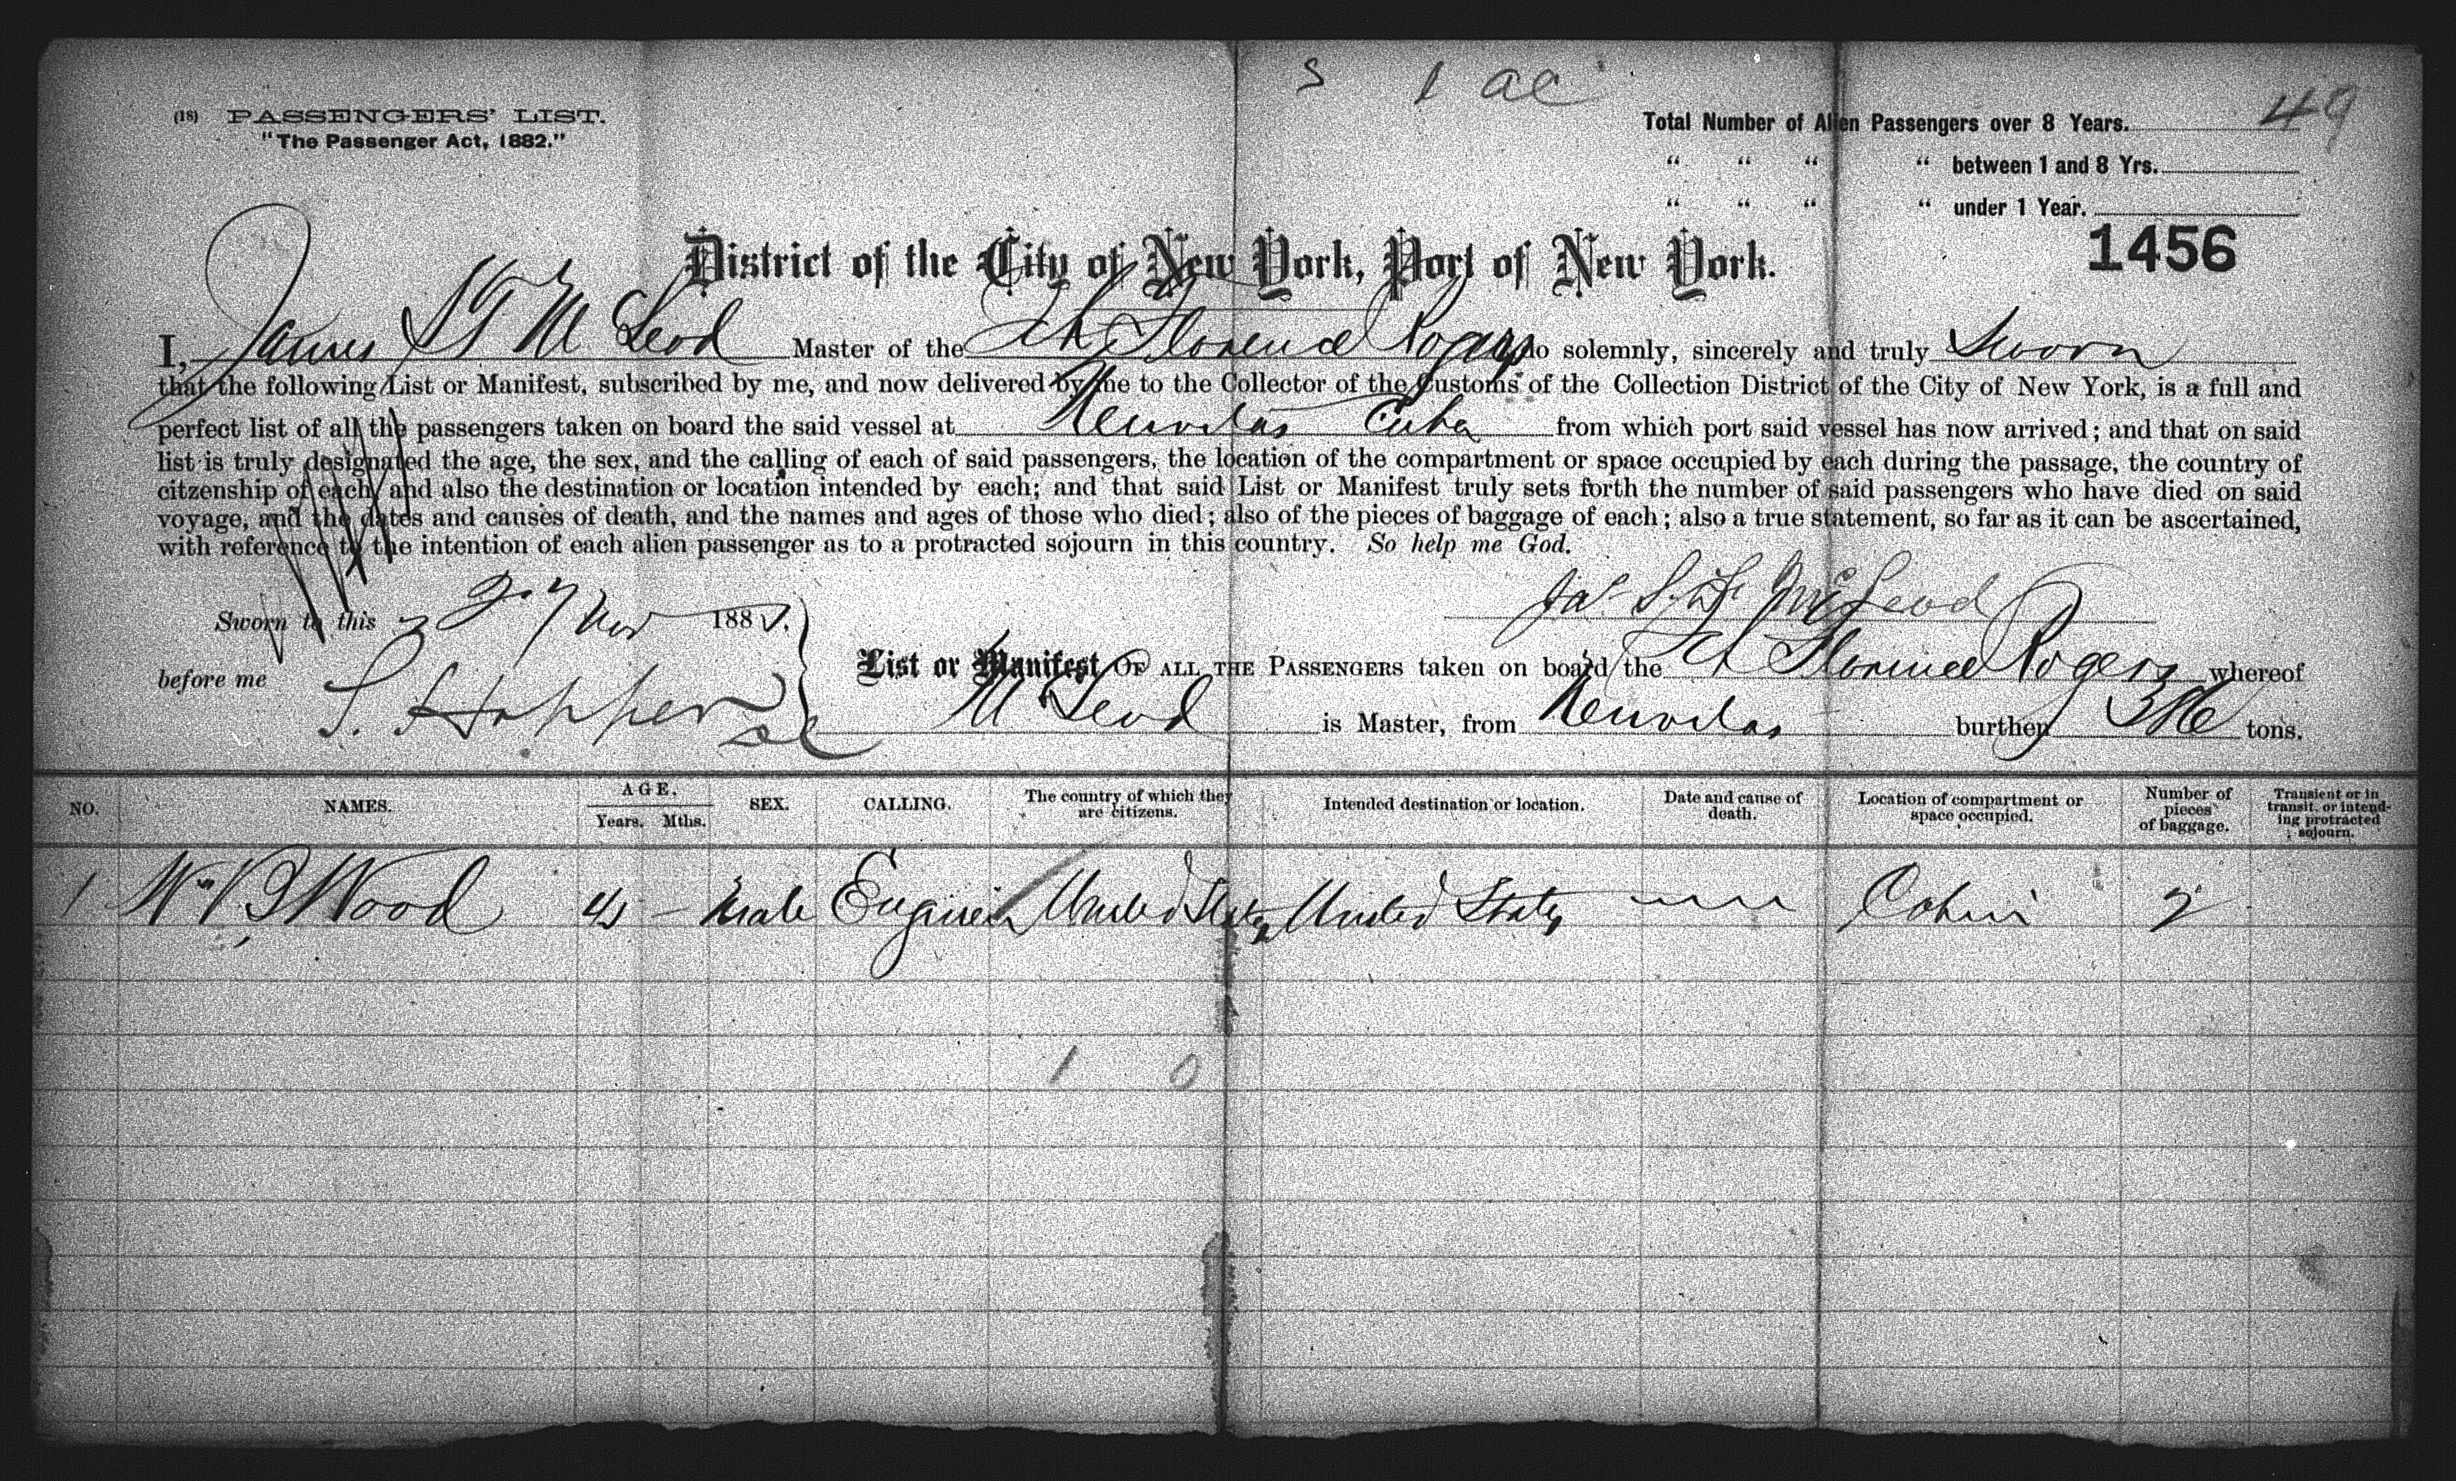 S 1 ac
(18) PASSENGERS' LIST.
"The Passenger Act, 1882."
Total Number of Alien Passengers over 8 Years. 49
" " " " between 1 and 8 Yrs.
" " " " under 1 Year.
1456
District of the City of New York, Port of New York.
I, James McLeod Master of the Sch Florence Rogers do solemnly, sincerely and truly Sworn
that the following List or Manifest, subscribed by me, and now delivered by me to the Collector of the Customs of the Collection District of the City of New York, is a full and
perfect list of all the passengers taken on board the said vessel at Neuvitas Cuba from which port said vessel has now arrived; and that on said
list is truly designated the age, the sex, and the calling of each of said passengers, the location of the compartment or space occupied by each during the passage, the country of
citzenship of each, and also the destination or location intended by each; and that said List or Manifest truly sets forth the number of said passengers who have died on said
voyage, and the dates and causes of death, and the names and ages of those who died; also of the pieces of baggage of each; also a true statement, so far as it can be ascertained,
with reference to the intention of each alien passenger as to a protracted sojourn in this country. So help me God.
Jas McLeod
Sworn to this Nov 188
before me S. Hopper
List or Manifest OF ALL THE PASSENGERS taken on board the Sch Florence Rogers whereof
McLeod is Master, from Neuvitas burthen tons.
NO. NAMES. AGE. Years. Mths. SEX. CALLING. The country of which they are citizens. Intended destination or location. Date and cause of death. Location of compartment or space occupied. Number of pieces of baggage. Transient or in transit, or intending protracted sojourn.
1 Wm B Wood — Male Engineer United States United States Cabin 2
1 0